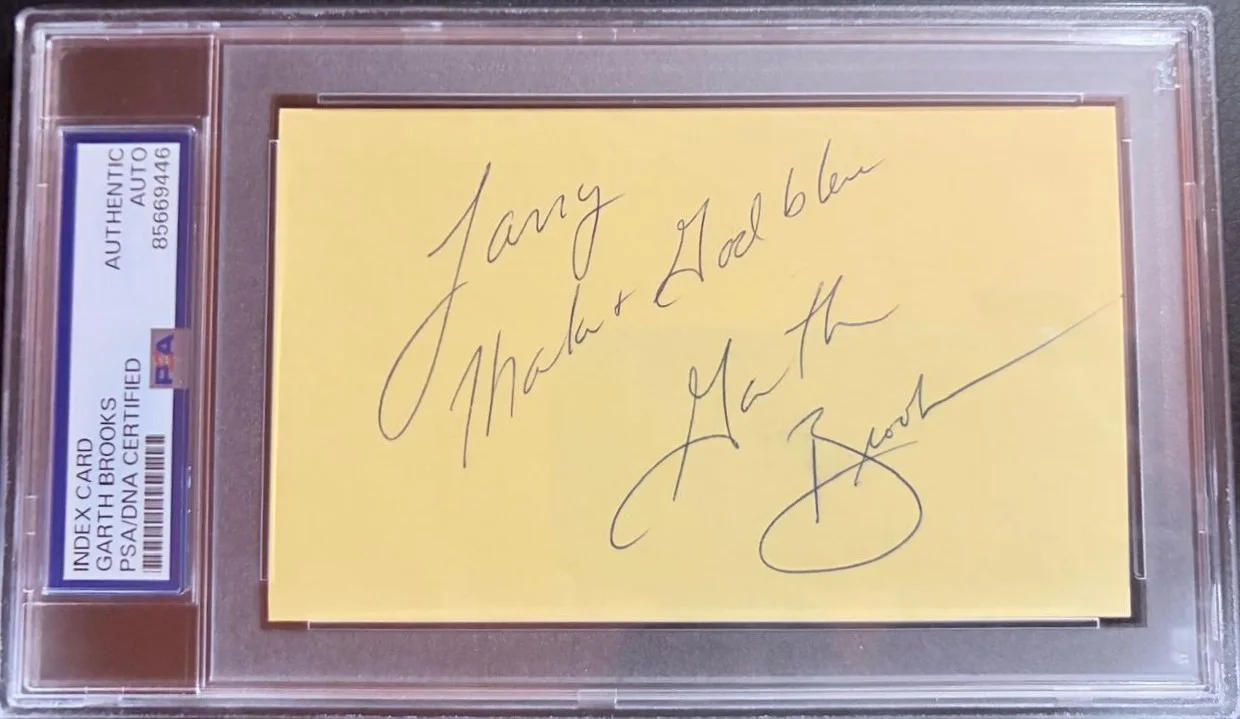 INDEX CARD
GARTH BROOKS
PSA/DNA CERTIFIED
AUTHENTIC
AUTO
85669446
PSA
Larry
Thanks + God bless
Garth
Brooks